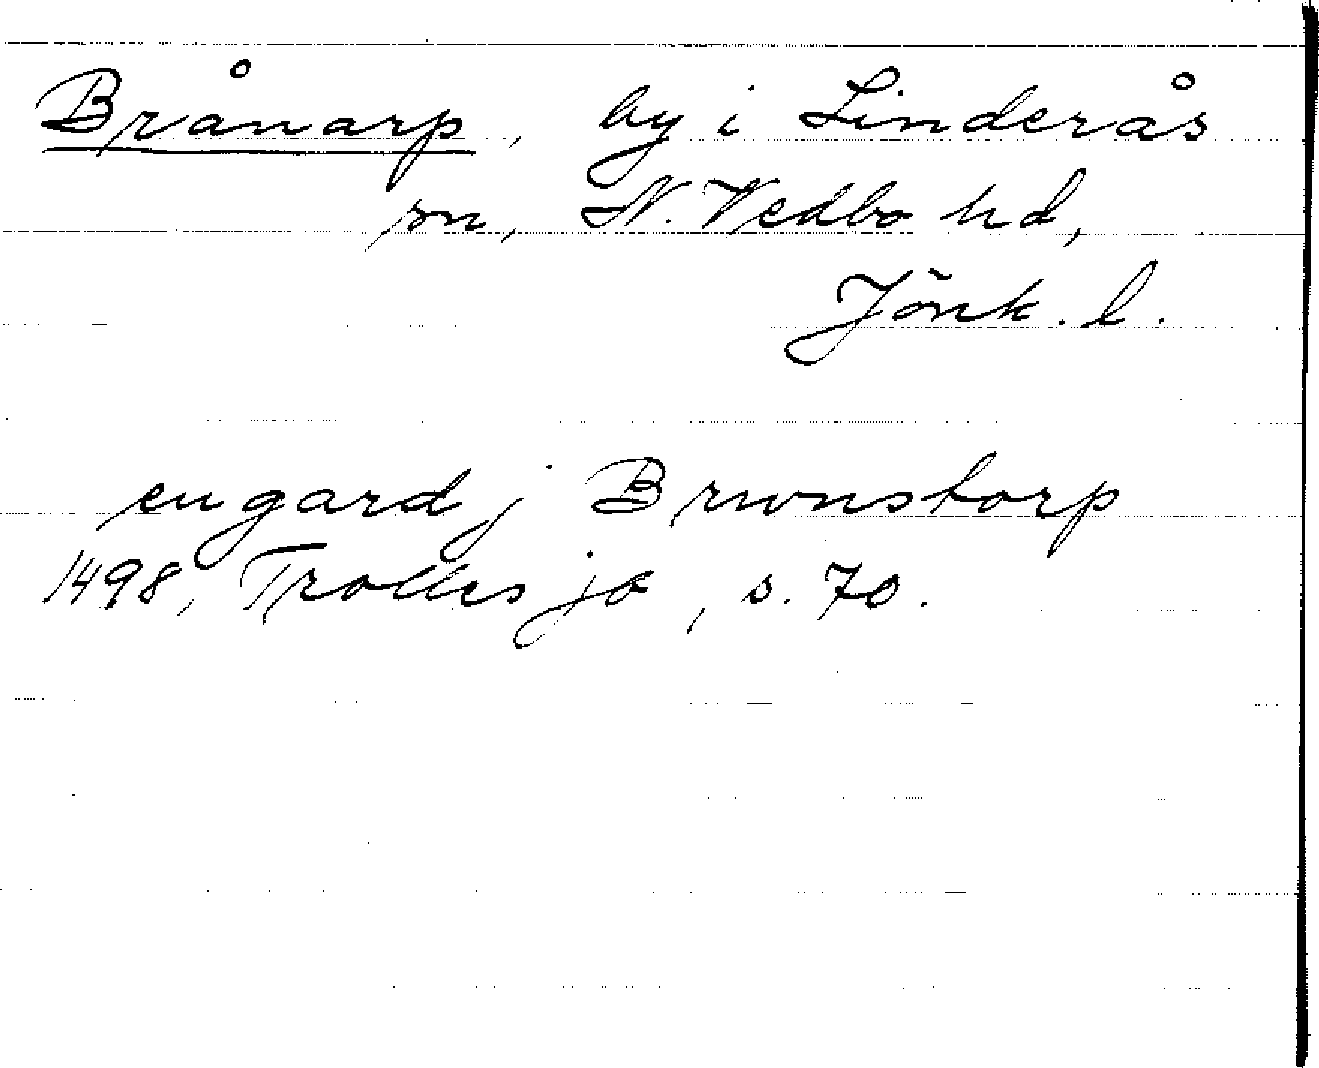 Brånarp, by i Linderås
sn, N. Vedbo hd,
Jönk. l.
en gard j Brwnstorp
1498, Trolles jo, s. 70.